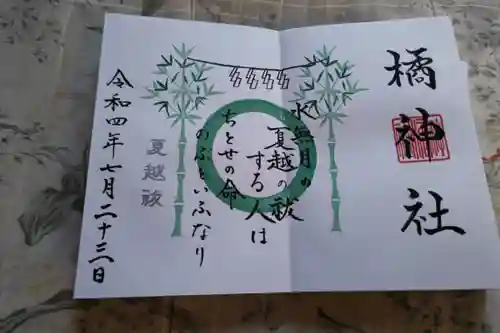 橘神社
水無月の
夏越の祓
する人は
ちとせの命
のぶといふなり
夏越祓
令和四年七月二十三日